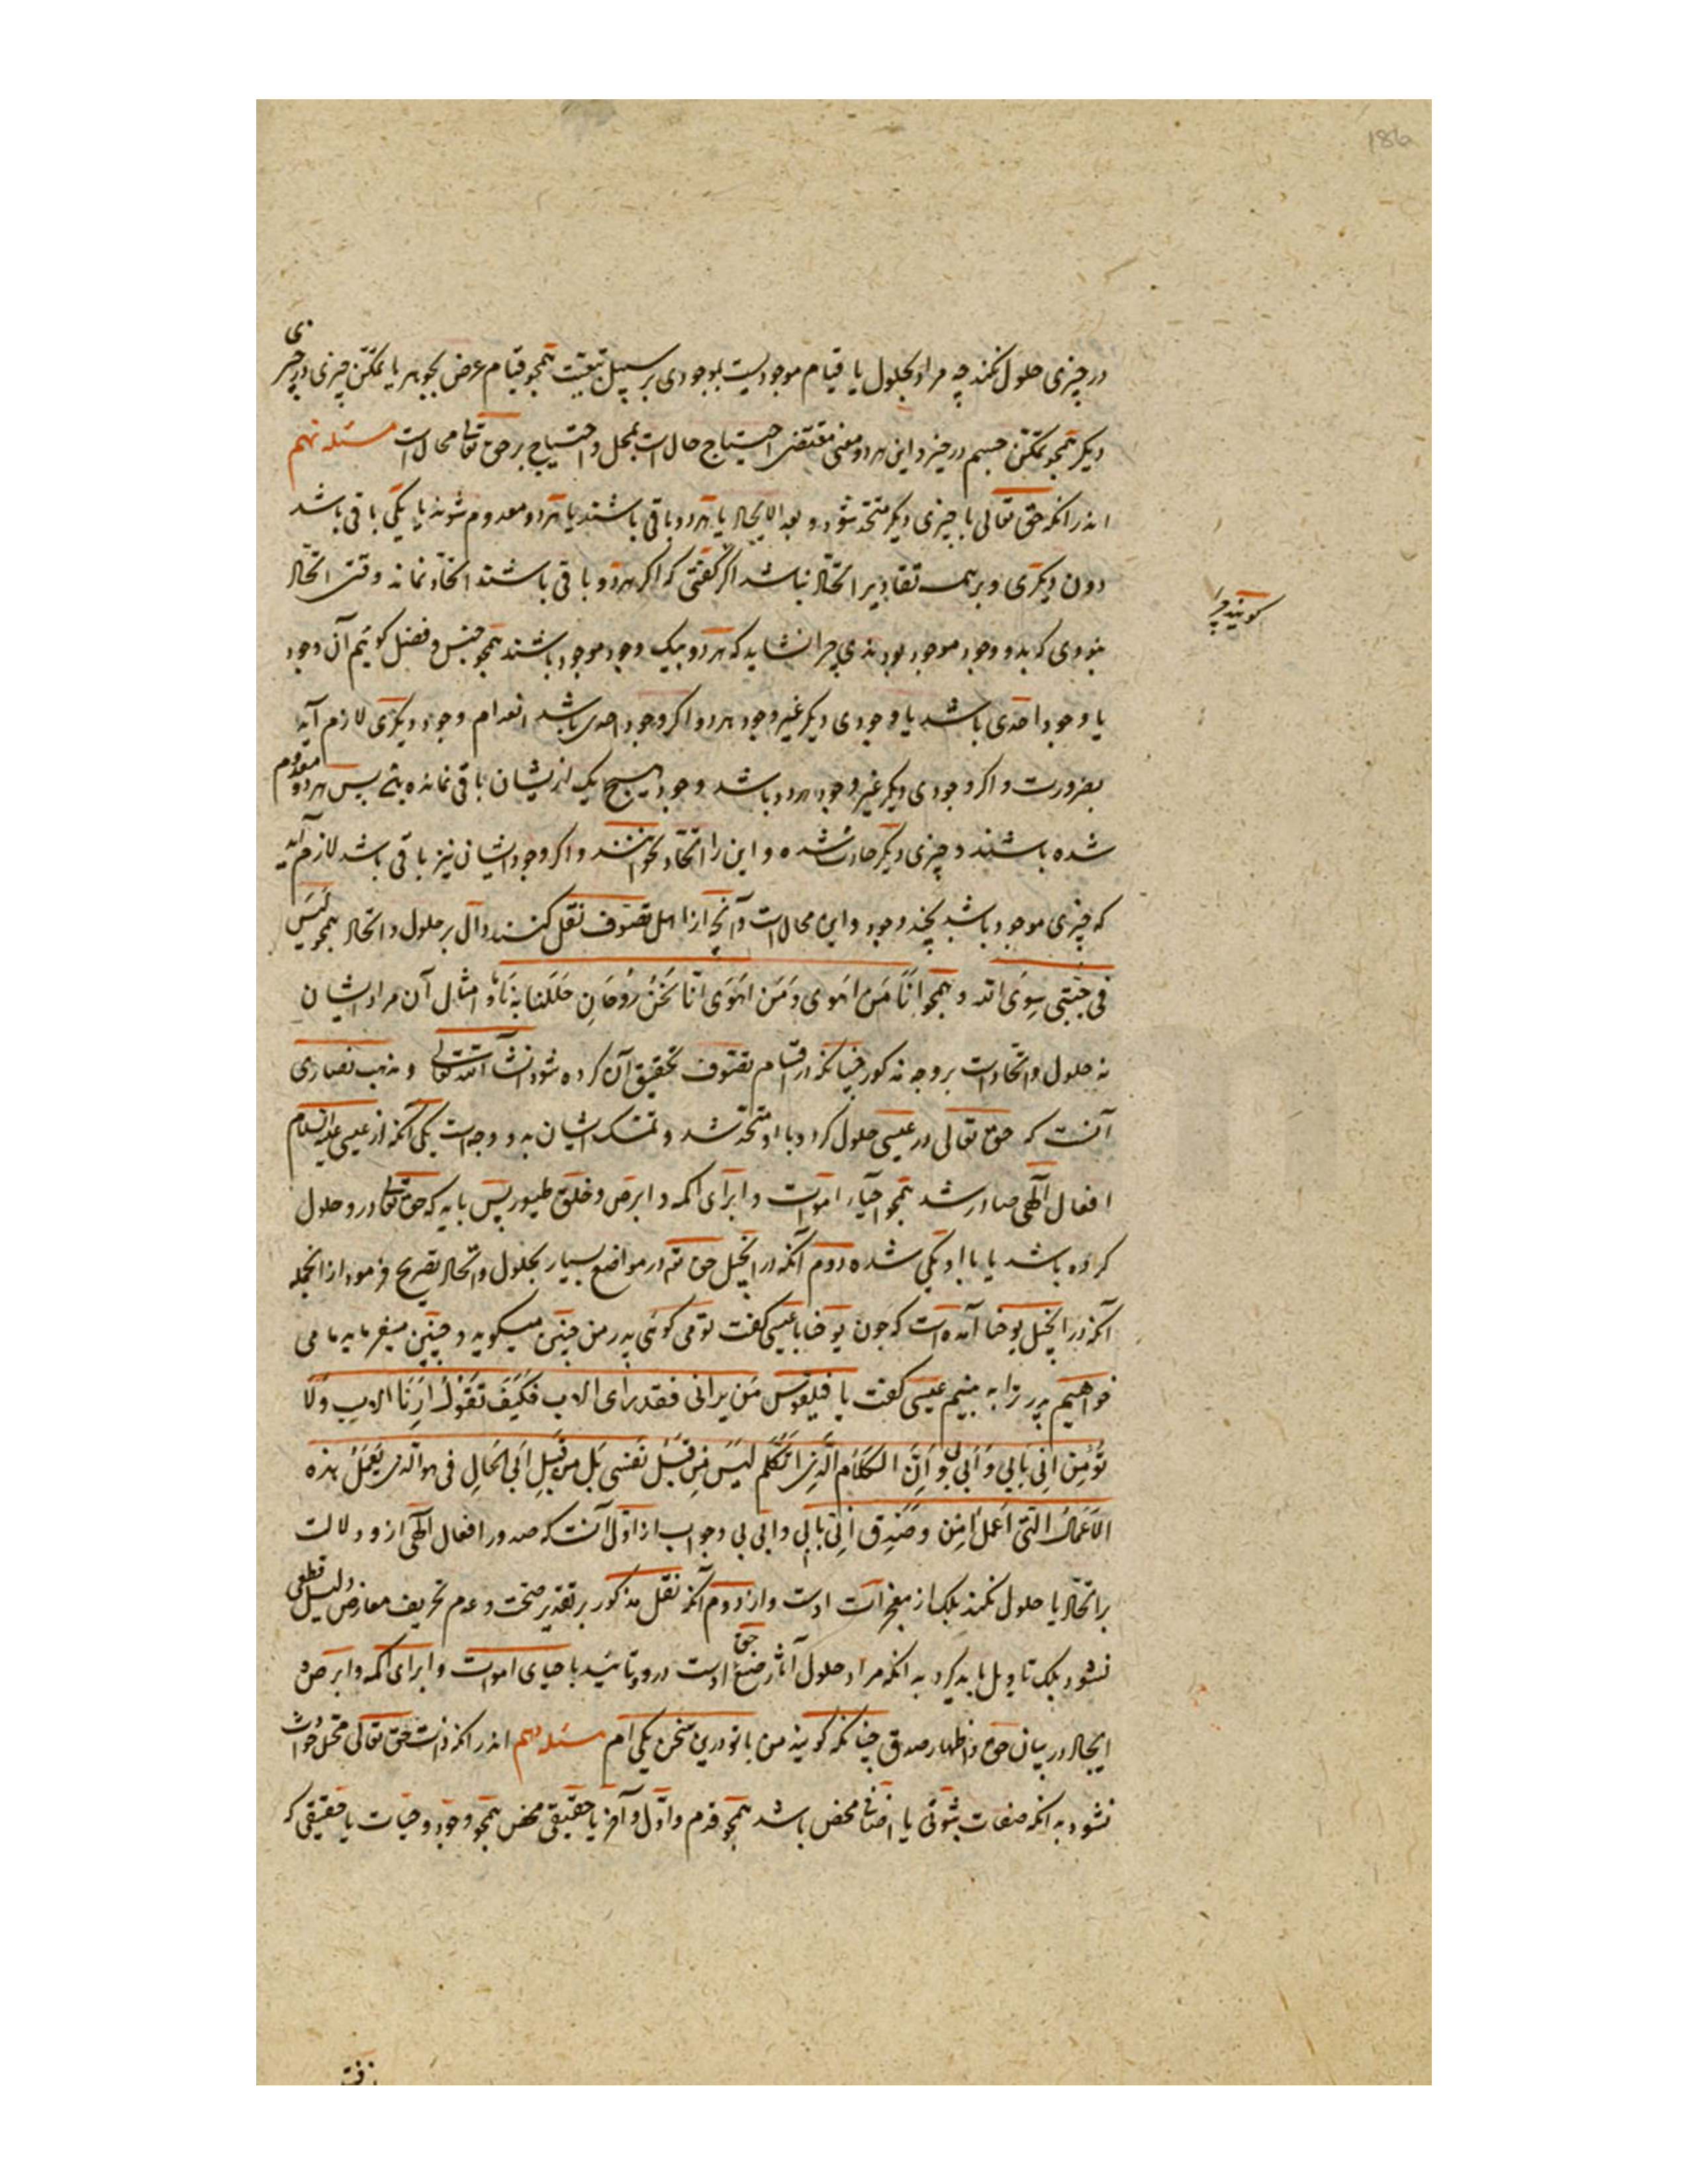 186
در چیزی حلول نکند چه مراد بحلول یا قیام موجودیست بموجودی بر سبیل تبعیت همچو قیام عرض بجوهر یا تمکّن چیزی در چیزی
دیکر همچو تمکّن جسم در حیز و این هر دو معنی مقتضی احتیاج حال است بمحل و احتیاج بر حق تعالی محال است مسئله نهم
اندر انکه حق تعالی با چیزی دیکر متحد نشود و بعد الاتحاد یا هر دو باقی باشند یا هر دو معدوم شوند یا یکی باقی باشد
دون دیکری و بر همه تقادیر اتحاد نباشد اکر کفتی که اکر هر دو باقی باشند اتحاد نماند وقتی اتحاد
نبودی که بدو وجود موجود بودندی چرا نشاید که هر دو بیک وجود موجود باشند همچو جنس و فصل کوئیم آن وجود
کویند چرا
یا وجود احدی باشد یا وجودی دیکر غیر وجود هر دو اکر وجود احدی باشد انعدام وجود دیکری لازم آید
بضرورت و اکر وجودی دیکر غیر وجود هر دو باشد وجود هیچ یک از یشان باقی نمانده پس هر دو معدوم
شده باشند و چیزی دیکر حادث شده و این را اتحاد نخوانند و اکر وجود ایشان نیز باقی باشد لازم آید
که چیزی موجود باشد بچند وجود و این محال است و آنچه از اهل تصوف نقل کنند دال بر حلول و اتحاد همچو لَیسَ
فی جُبَّتی سِوَی الله و همچو اَنَا مَن اَهوی وَ مَن اَهوَی اَنَا نَحنُ رُوحَانِ حَلَلنَا بَدَنَا و امثال آن مراد ایشان
نه حلول و اتحاد است بر وجه مذکور چنانکه در اقسام تصوف تحقیق آن کرده شود انشآ الله تعالی و مذهب نصاری
آنست که حق تعالی در عیسی حلول کرد و با او متحد شد و تمسک ایشان بدو وجه است یکی آنکه از عیسی علیه السلام
افعال آلهی صادر شد همچو احیآء اموات و ابرای اکمه و ابرص و خلق طیور پس باید که حق تعالی درو حلول
کرده باشد یا با او یکی شده دوم آنکه در انجیل حق تعه در مواضع بسیار بحلول و اتحاد تصریح فرمود از انجمله
آنکه در انجیل یوحنا آمده است که جون یوحنا با عیسی کفت تو می کوئی پدر من چنین میکوید و چنین میفرماید ما می
خواهیم پدر ترا به بینیم عیسی کفت یا فیلقوس مَن یرانی فقد رای الاب فَکَیفَ تَقُولُ اَرِنَا الاب وَلَا
تُؤمِن اَنِّی بِاَبی وَ اَبی بی وَ اَنَّ الکَلَام الَّذِی اَتَکَلَّم لَیسَ مِن قِبَلِ نَفسِی بَل مِن قِبَلِ اَبی الحَالِ فِی هو الذی یَعمَلُ هذه
الاَعمَالُ الَّتی اَعمَلُ اٰمِن وَصَدِّق اَنّی بِاَبی و ابی بی و جواب از اوّل آنست که صدور افعال آلهی ازو دلالت
بر اتحاد یا حلول نکند بلک از معجزات اوست و از دوم آنکه نقل مذکور بر تقدیر صحت و عدم تحریف معارض دلیل قطعی
نشود بلک تاویل باید کرد به انکه مراد حلول آثار صنع حق اوست درو و تائید باحیای اموات و ابرای اکمه و ابرص و
اتحاد در بیان حق و اظهار صدق چنانکه کویند من با تو درین سخن یکی ام مسئله دهم اندر انکه ذات حق تعالی محل حوادث
نشود به انکه صفات ثبوتی یا اضافی محض باشد همچو قدم و اوّل و آخر یا حقیقی محض همچو وجود و حیات یا حقیقی که